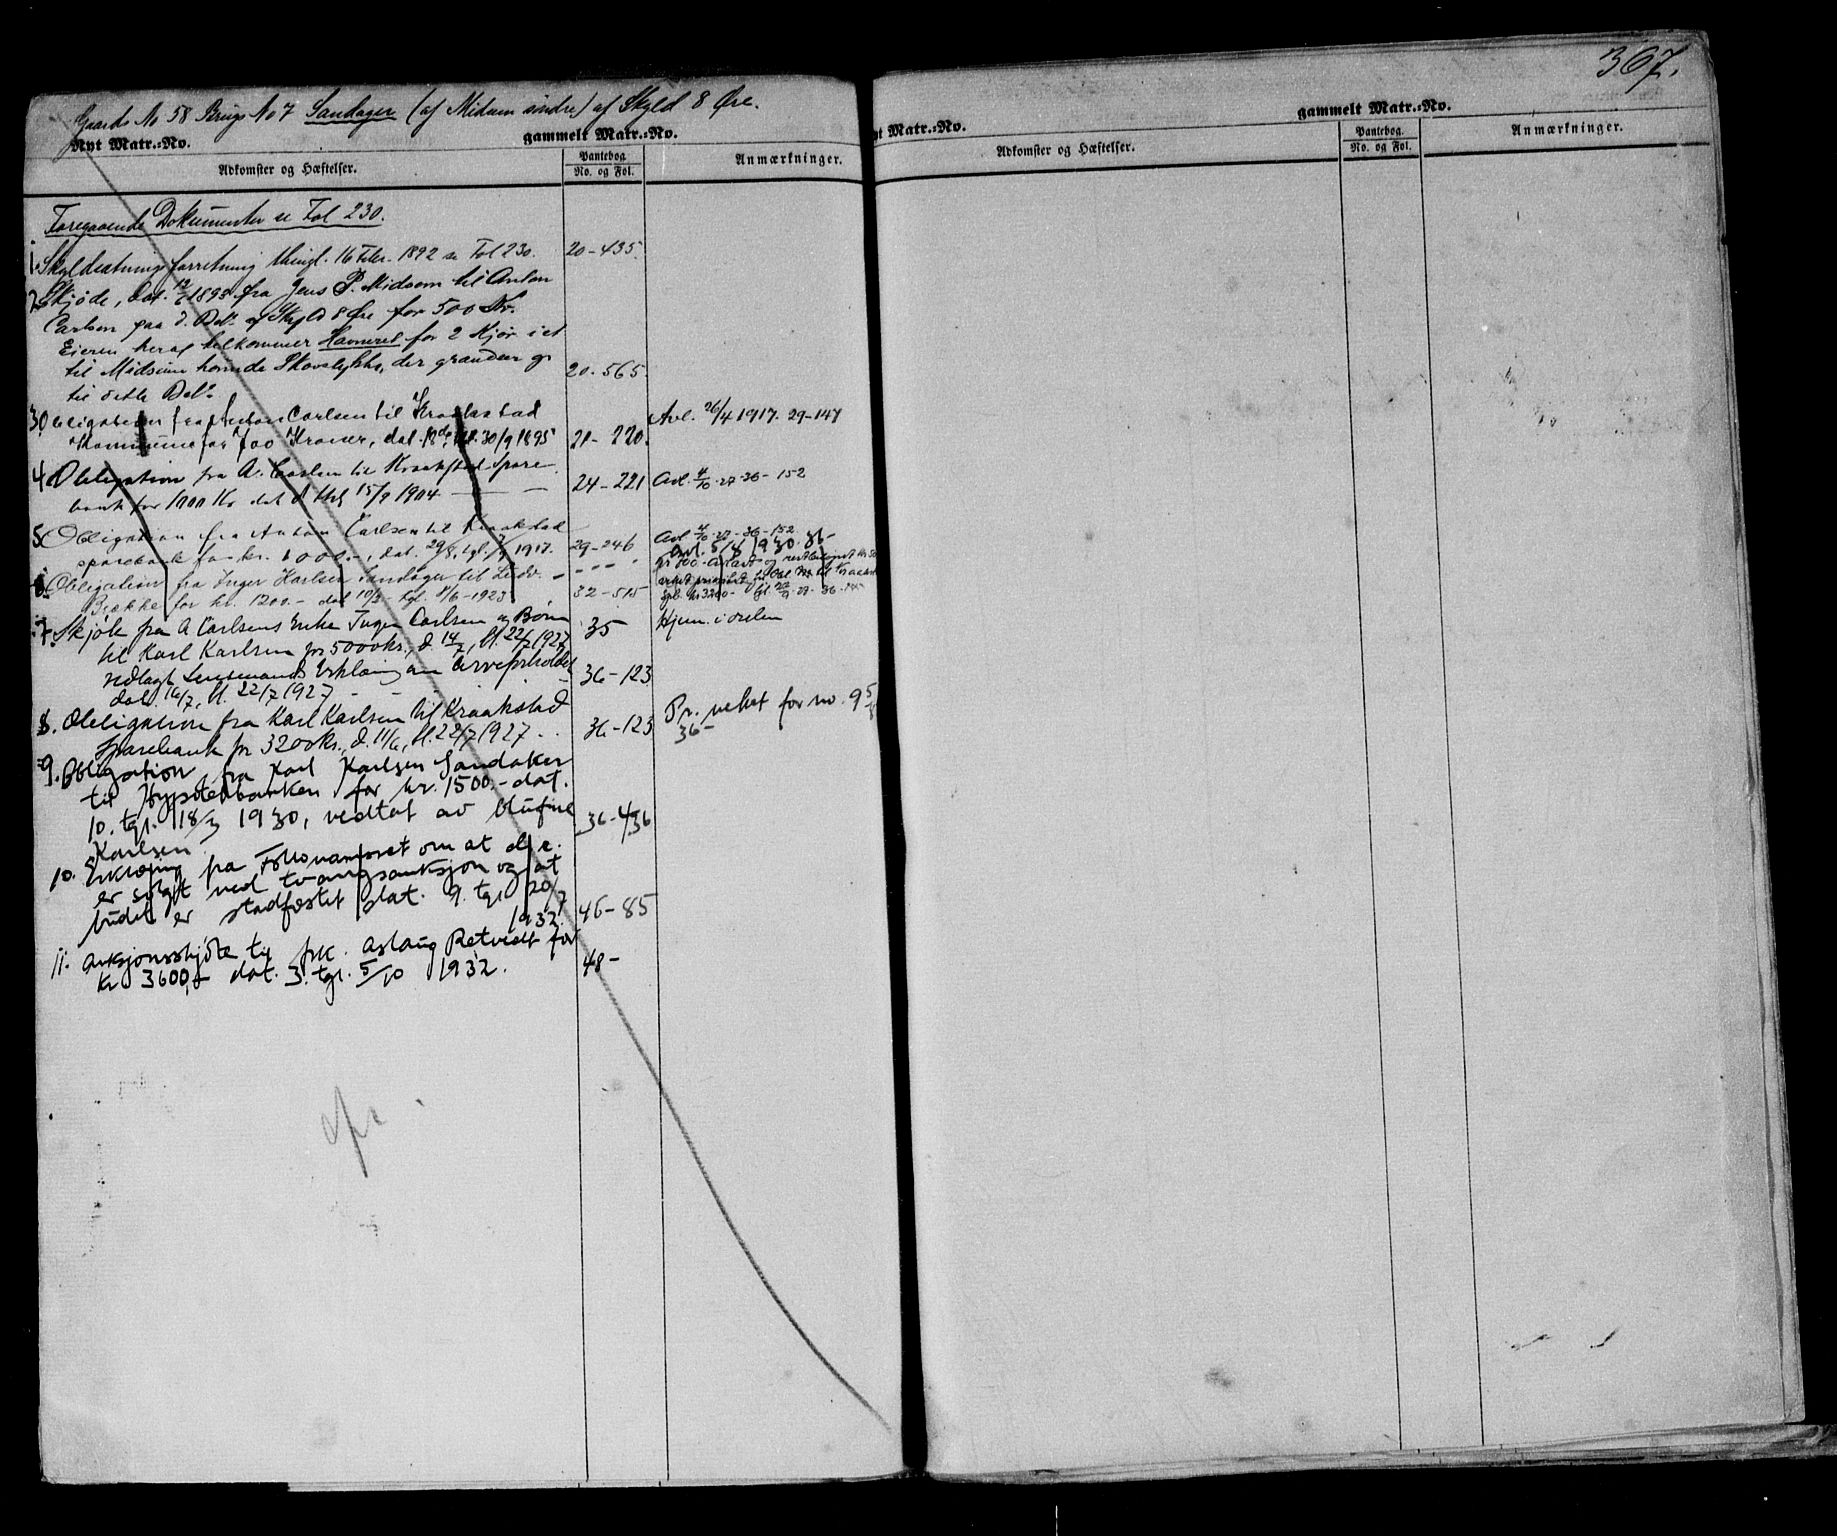 367.
Gaards No 58 Brugs No 7 Sandager (af Midsem søndre) af Skyld 8 Øre.
Nyt Matr.-No. gammelt Matr.-No.
Adkomster og Hæftelser. Pantebog No. og Fol. Anmærkninger.
Foregaaende Dokumenter se Fol 230.
1. Skyldsætningsforretning thingl. 16 Febr. 1892 se Fol 230. 20-435.
2. Skjøde, dat. 1893 fra Jens P. Midsem til Anton
Carlsen paa d. Del af Skyld 8 Øre for 500 Kr.
Eieren heraf tilkommer Havneret for 2 Kjør i et
til Midsem hørende Skovstykke, der grændser op
til dette Del. 20-565.
3. Obligation fra Anton Carlsen til Kraakstad
Kommune for 700 Kroner, dat. 18de, tgl. 30/9 1895 21-220. Avl. 26/4 1917. 29-147
4. Obligation fra A. Carlsen til Kraakstad Spare-
bank for 1000 Kr dat. & thgl 15/9 1904 24-221 Avl. 4/10-27-36-152
5. Obligation fra Anton Carlsen til Kraakstad
sparebank for kr. 1000.-, dat. 29/8, tgl. 1917. 29-246 Avl. 4/10-27-36-152
6. Obligation fra Inger Karlsen Sandager til Ludv. Avl. 5/8 1930. 36-
Brække for kr. 1200.- dat 10/3 - tgl. 8/6-1923 32-515
7. Skjøte fra A Carlsens Enke Inger Carlsen og Børn 35 Hjem. i orden
til Karl Karlsen for 5000 kr., d. 14/7, tl. 22/7 1927
vedlagt Lensmands Erklæring om Arveforholdet 36-123
dat. 16/7, tl. 22/7 1927
8. Obligation fra Karl Karlsen til Kraakstad
Sparebank for 3200 kr., d. 11/6, tl. 22/7 1927 36-123 Pr. veket for no. 9 5/8
36-
9. Obligation fra Karl Karlsen Sandaker
til Hypotekbanken for kr. 1500.- dat.
10. tgl. 18/3 1930, vedtat av
Karlsen. 36-436
10. Erklæring fra Follo namsret om at d. e.
er solgt ved tvangsauksjon og at
budet er stadfestet dat. 9. tgl 20/7
1932. 46-85
11. Auksjonsskjøte til frk. Aslaug Retvedt for
kr 3600,- dat. 3. tgl. 5/10 1932. 48-
Nyt Matr.-No. gammelt Matr.-No.
Adkomster og Hæftelser. Pantebog. No. og Fol. Anmærkninger.